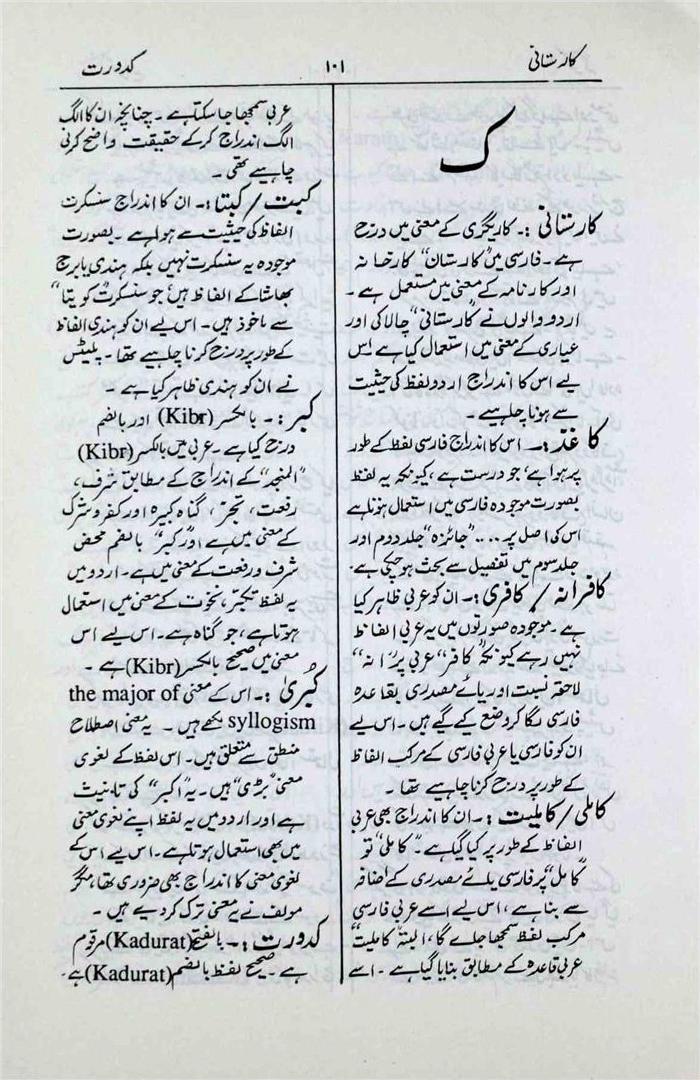 کارستانی
۱۰۱
کدورت
ک
کارستانی :۔ کاریگری کے معنی میں درج
ہے۔ فارسی میں "کارستان" کارخانہ
اور کارنامہ کے معنی میں مستعمل ہے۔
اردو والوں نے "کارستانی" چالاکی اور
عیاری کے معنی میں استعمال کیا ہے اس
لیے اس کا اندراج اردو لفظ کی حیثیت
سے ہونا چاہیے۔
کاغذ :۔ اس کا اندراج فارسی لفظ کے طور
پر ہوا ہے، جو درست ہے، کیونکہ یہ لفظ
بصورت موجودہ فارسی میں استعمال ہوتا ہے
اس کی اصل پر .... "جائزہ" جلد دوم اور
جلد سوم میں تفصیل سے بحث ہو چکی ہے۔
کافرانہ / کافری :۔ ان کو عربی ظاہر کیا
ہے۔ موجودہ صورتوں میں یہ عربی الفاظ
نہیں رہے کیونکہ "کافر" عربی پر "انہ"
لاحقہ نسبت اور یائے مصدری بقاعدہ
فارسی لگا کر وضع کیے گیے ہیں۔ اس لیے
ان کو فارسی یا عربی فارسی کے مرکب الفاظ
کے طور پر درج کرنا چاہیے تھا۔
کاملی / کاملیت :۔ ان کا اندراج بھی عربی
الفاظ کے طور پر کیا گیا ہے۔ "کاملی" تو
"کامل" پر فارسی یائے مصدری کے اضافہ
سے بنا ہے، اس لیے اسے عربی فارسی
مرکب لفظ سمجھا جائے گا، البتہ "کاملیت"
عربی قاعدہ کے مطابق بنایا گیا ہے۔ اسے
عربی سمجھا جا سکتا ہے۔ چنانچہ ان کا الگ
الگ اندراج کر کے حقیقت واضح کرنی
چاہیے تھی۔
کبت / کبتا :۔ ان کا اندراج سنسکرت
الفاظ کی حیثیت سے ہوا ہے۔ بصورت
موجودہ یہ سنسکرت نہیں بلکہ ہندی یا برج
بھاشا کے الفاظ ہیں جو سنسکرت "کویتا"
سے ماخوذ ہیں۔ اس لیے ان کو ہندی الفاظ
کے طور پر درج کرنا چاہیے تھا۔ پلیٹس
نے ان کو ہندی ظاہر کیا ہے۔
کبر :۔ بالکسر (Kibr) اور بالضم
درج کیا ہے۔ عربی میں بالکسر (Kibr)
"المنجد" کے اندراج کے مطابق شرف،
رفعت، تجبّر، گناہ کبیرہ اور کفر و شرک
کے معنی میں ہے اور "کبر" بالضم محض
شرف و رفعت کے معنی میں ہے۔ اردو میں
یہ لفظ تکبّر، نخوت کے معنی میں استعمال
ہوتا ہے، جو گناہ ہے۔ اس لیے اس
معنی میں صحیح بالکسر (Kibr) ہے۔
کُبریٰ :۔ اس کے معنی the major of
syllogism لکھے ہیں۔ یہ معنی اصطلاح
منطق سے متعلق ہیں۔ اس لفظ کے لغوی
معنی "بڑی" ہیں۔ یہ "اکبر" کی تانیث
ہے اور اردو میں یہ لفظ اپنے لغوی معنی
میں بھی استعمال ہوتا ہے۔ اس لیے اس کے
لغوی معنی کا اندراج بھی ضروری تھا، مگر
مولف نے یہ معنی ترک کر دیے ہیں۔
کدورت :۔ بالفتح (Kadurat) مرقوم
ہے۔ صحیح لفظ بالضم (Kadurat) ہے۔